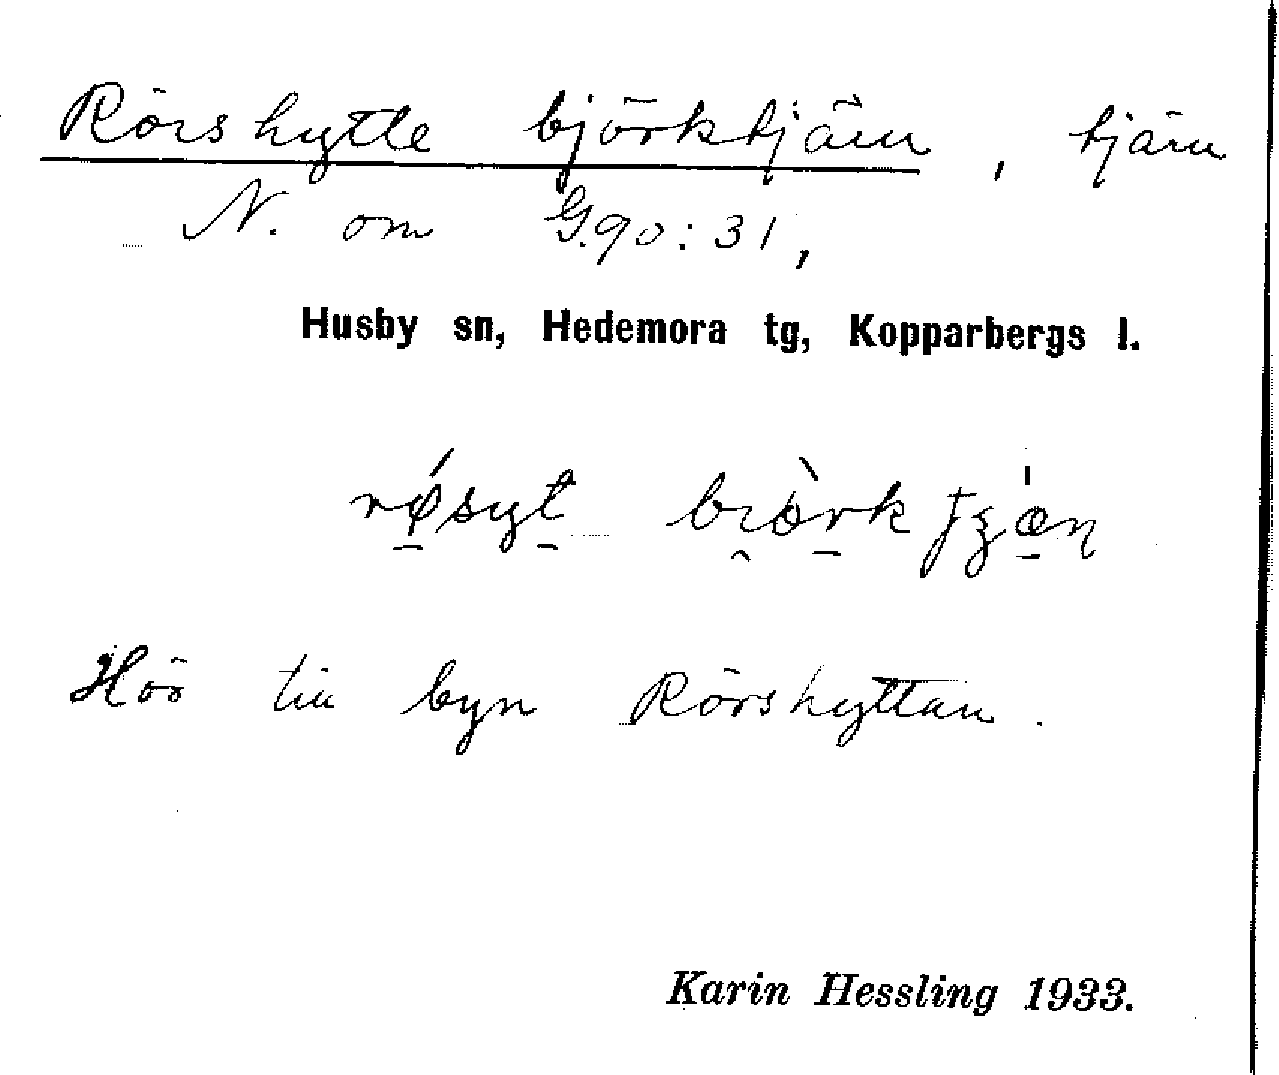 Rörshytte björktjärn, tjärn
N. om G.90:31,
Husby sn, Hedemora tg, Kopparbergs l.
Hör till byn Rörshyttan.
Karin Hessling 1933.